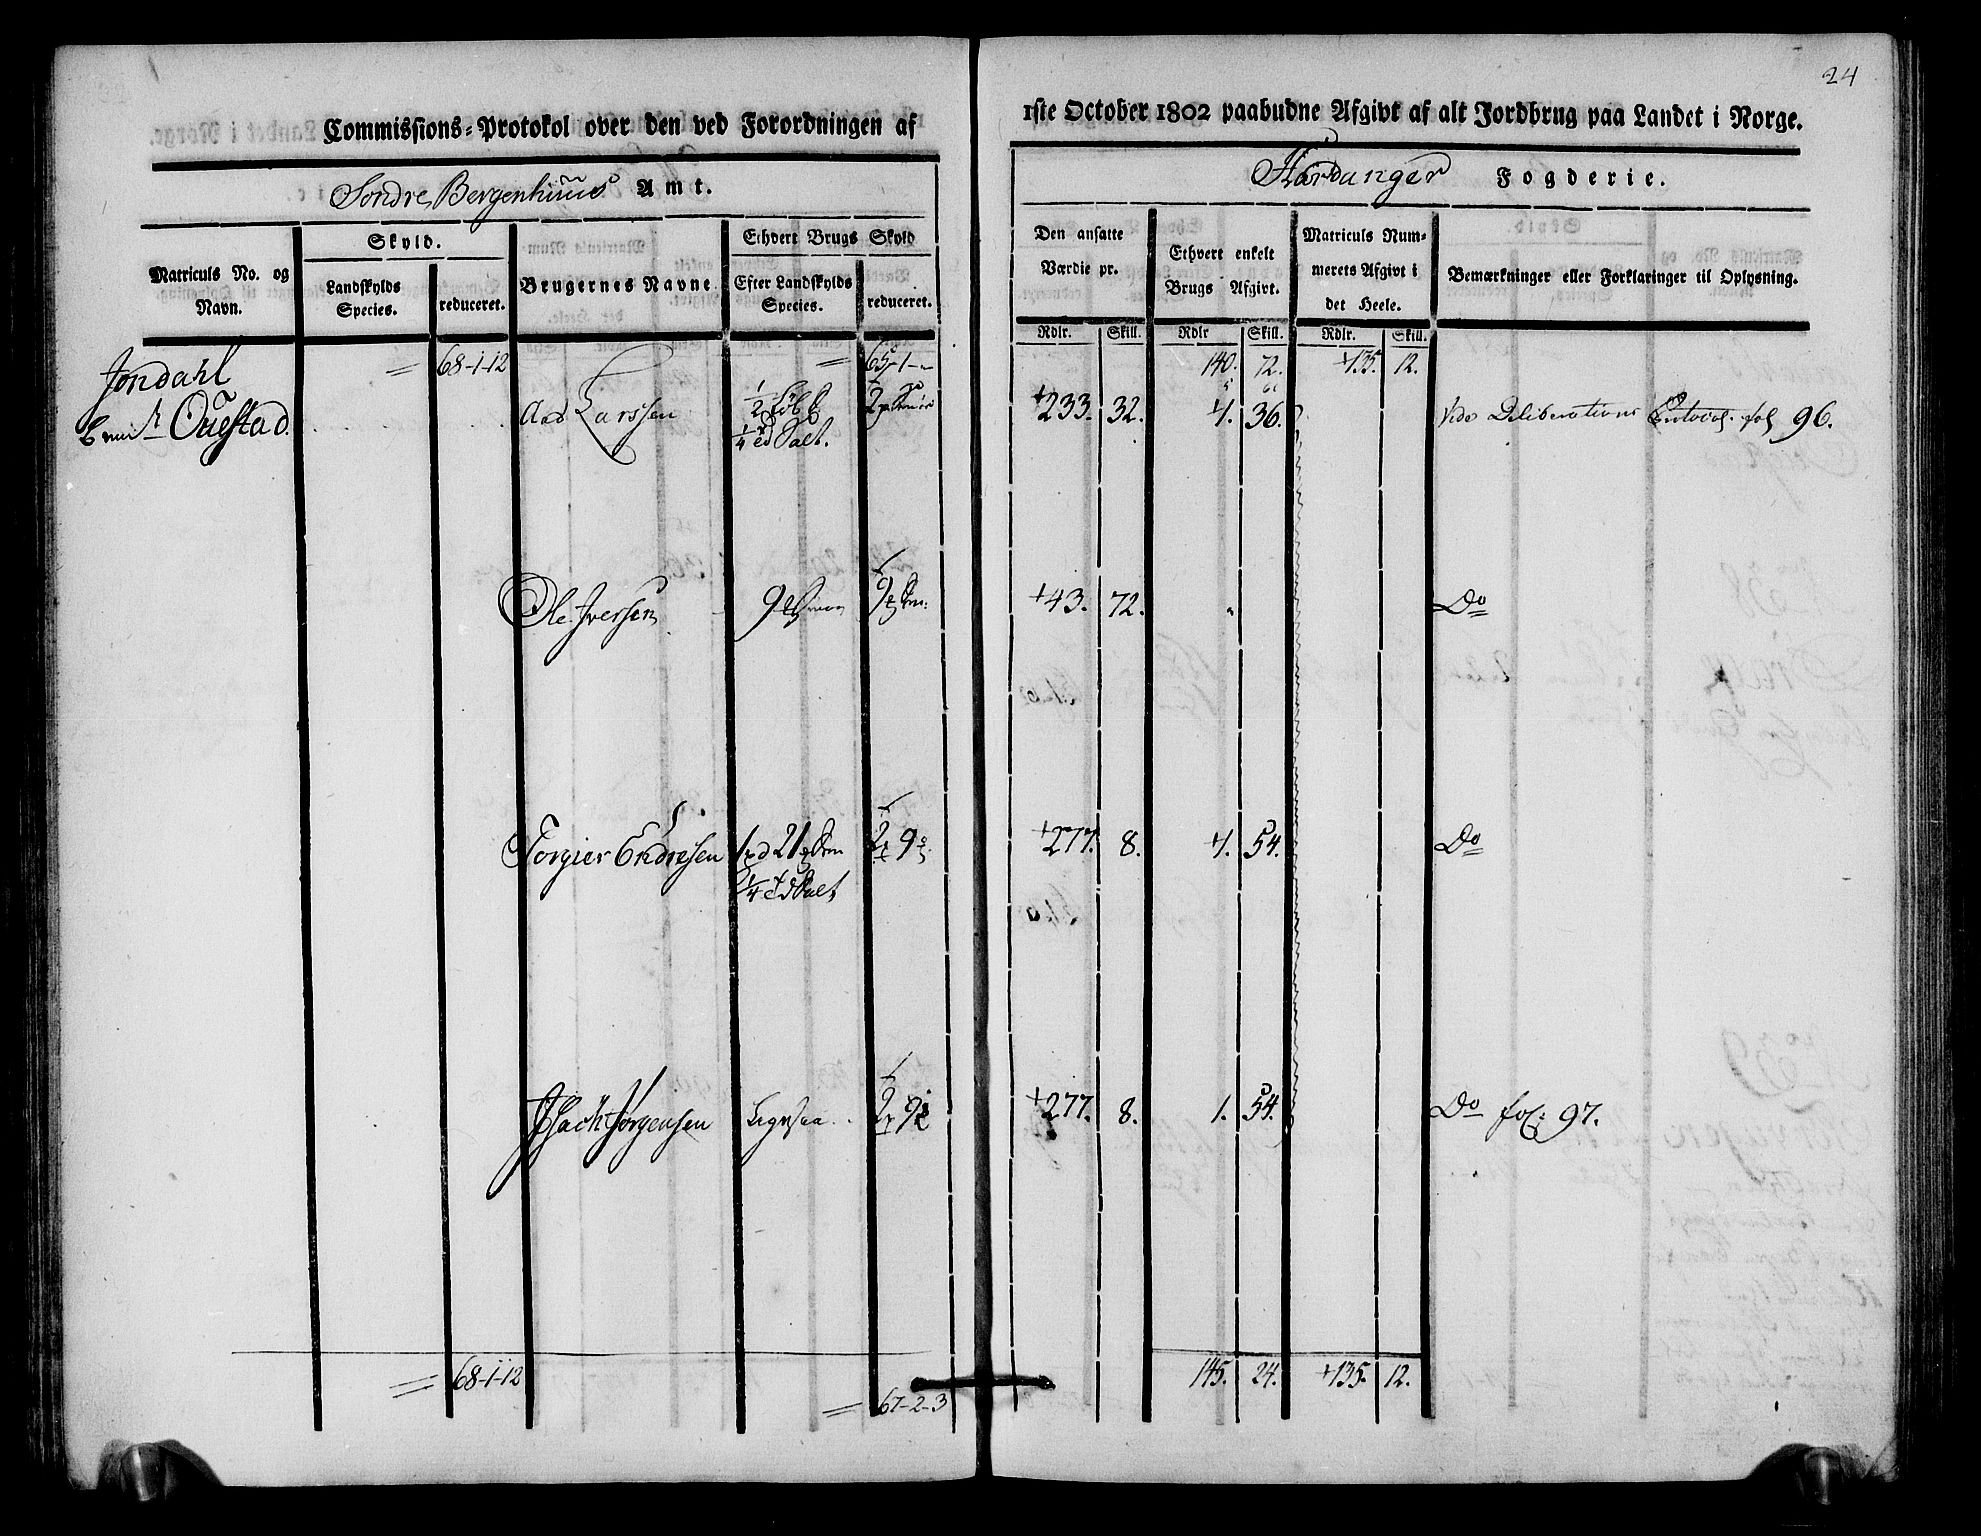 24
Commissions-Protokol over den ved Forordningen af
1ste October 1802 paabudne Afgivt af alt Jordbrug paa Landet i Norge.
Søndre Bergenhuus Amt.
Hardanger Fogderie.
Matriculs No. og Navn.
Skyld.
Landskylds Species.
reduceret.
Brugernes Navne
Ethvert Brugs Skyld
Efter Landskylds Species.
reduceret.
Den ansatte Værdie pr.
Rdlr. Skill.
Ethvert enkelt Brugs Afgivt.
Rdlr Skill.
Matriculs Nummerets Afgivt i det Heele.
Rdlr. Skill.
Bemærkninger eller Forklaringer til Oplysning.
Jondahl = 68-1-12 = 65-1-" 140. 72. +135. 12.
Ouestad. Larssen 1/2 +233. 32. 1. 36. Vide Deliberations fol 96.
1/4 Salt.
Ole Iversen 9 9 +43. 72. " Do
Torgier Endresen 1 21 2 9 +277. 8. 1. 54. Do
1/4 Salt
Isach Jørgensen Ligesaa 2 9 +277. 8. 1. 54. Do fol: 97.
= 68-1-12 = 67-2-3 145. 24. +135. 12.